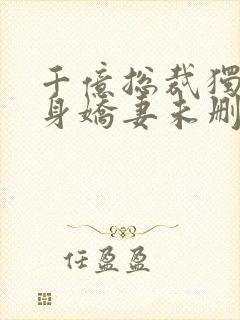 千億总裁獨
身嬌妻未删
任盈盈